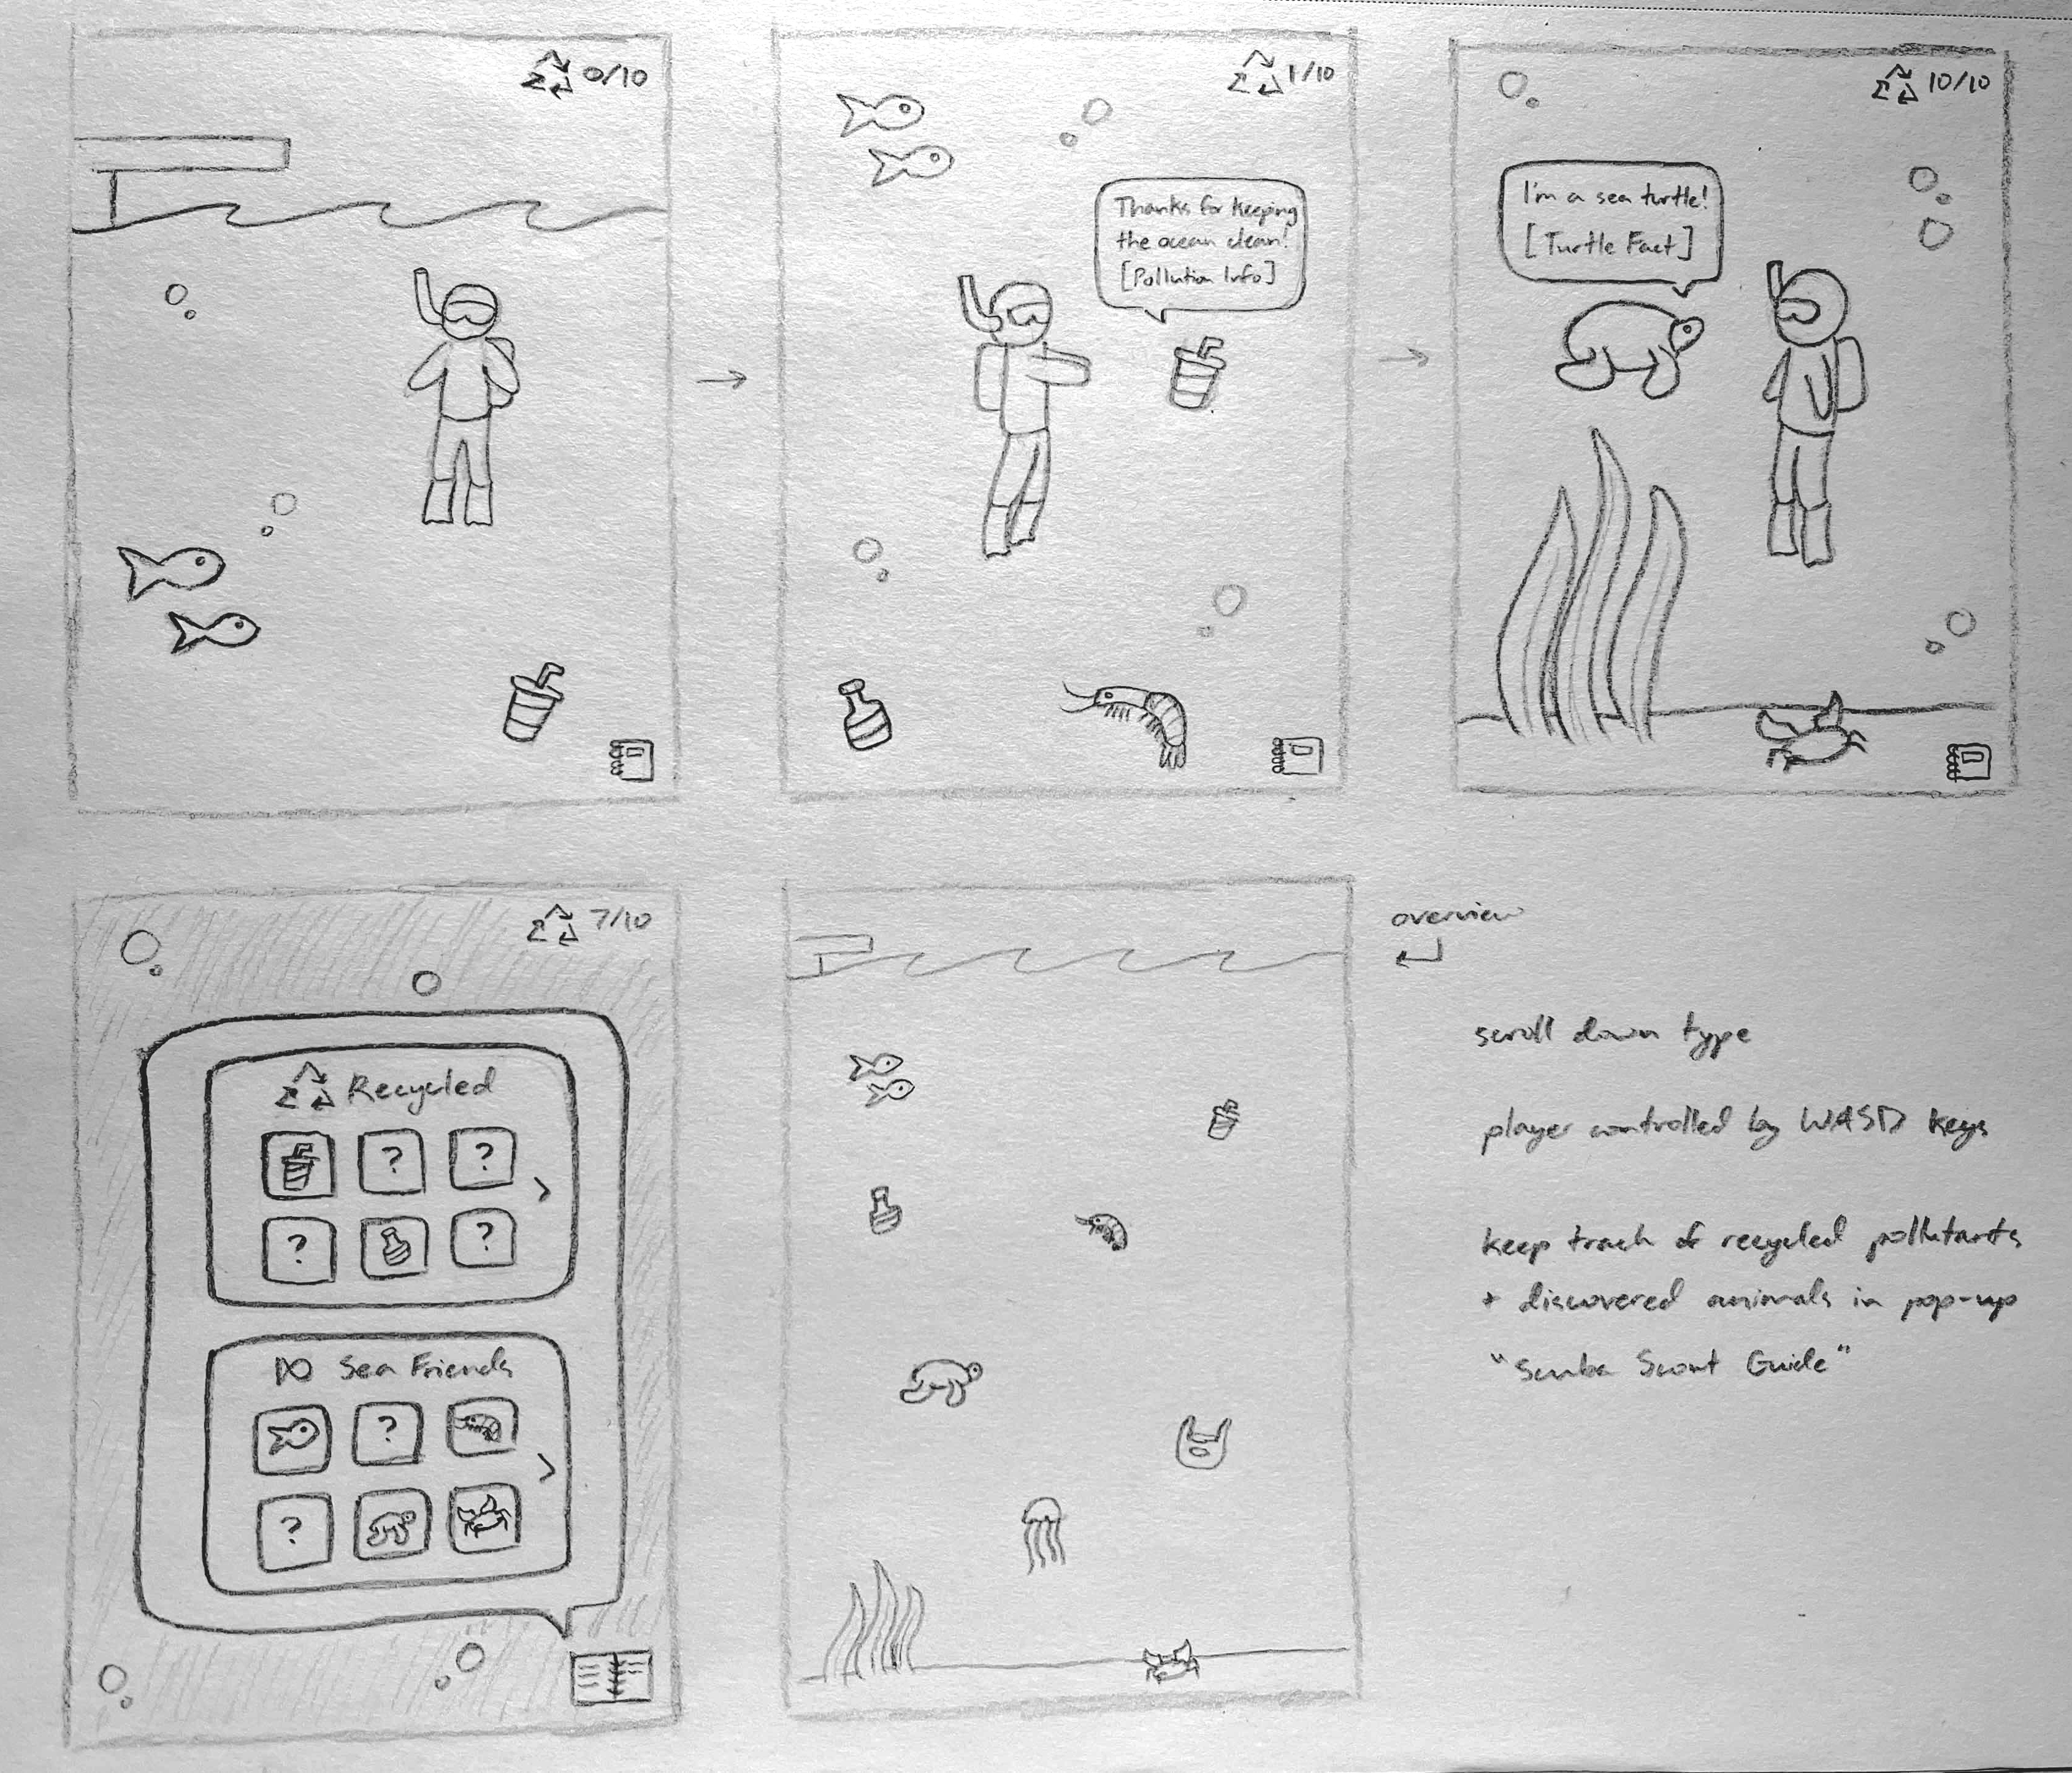 0/10
1/10
Thanks for keeping
the ocean clean!
[Pollution Info]
10/10
I'm a sea turtle!
[Turtle Fact]
7/10
Recycled
? ?
? ?
>
Sea Friends
?
?
>
overview
scroll down type
player controlled by WASD keys
keep track of recycled pollutants
+ discovered animals in pop-up
"Scuba Scout Guide"